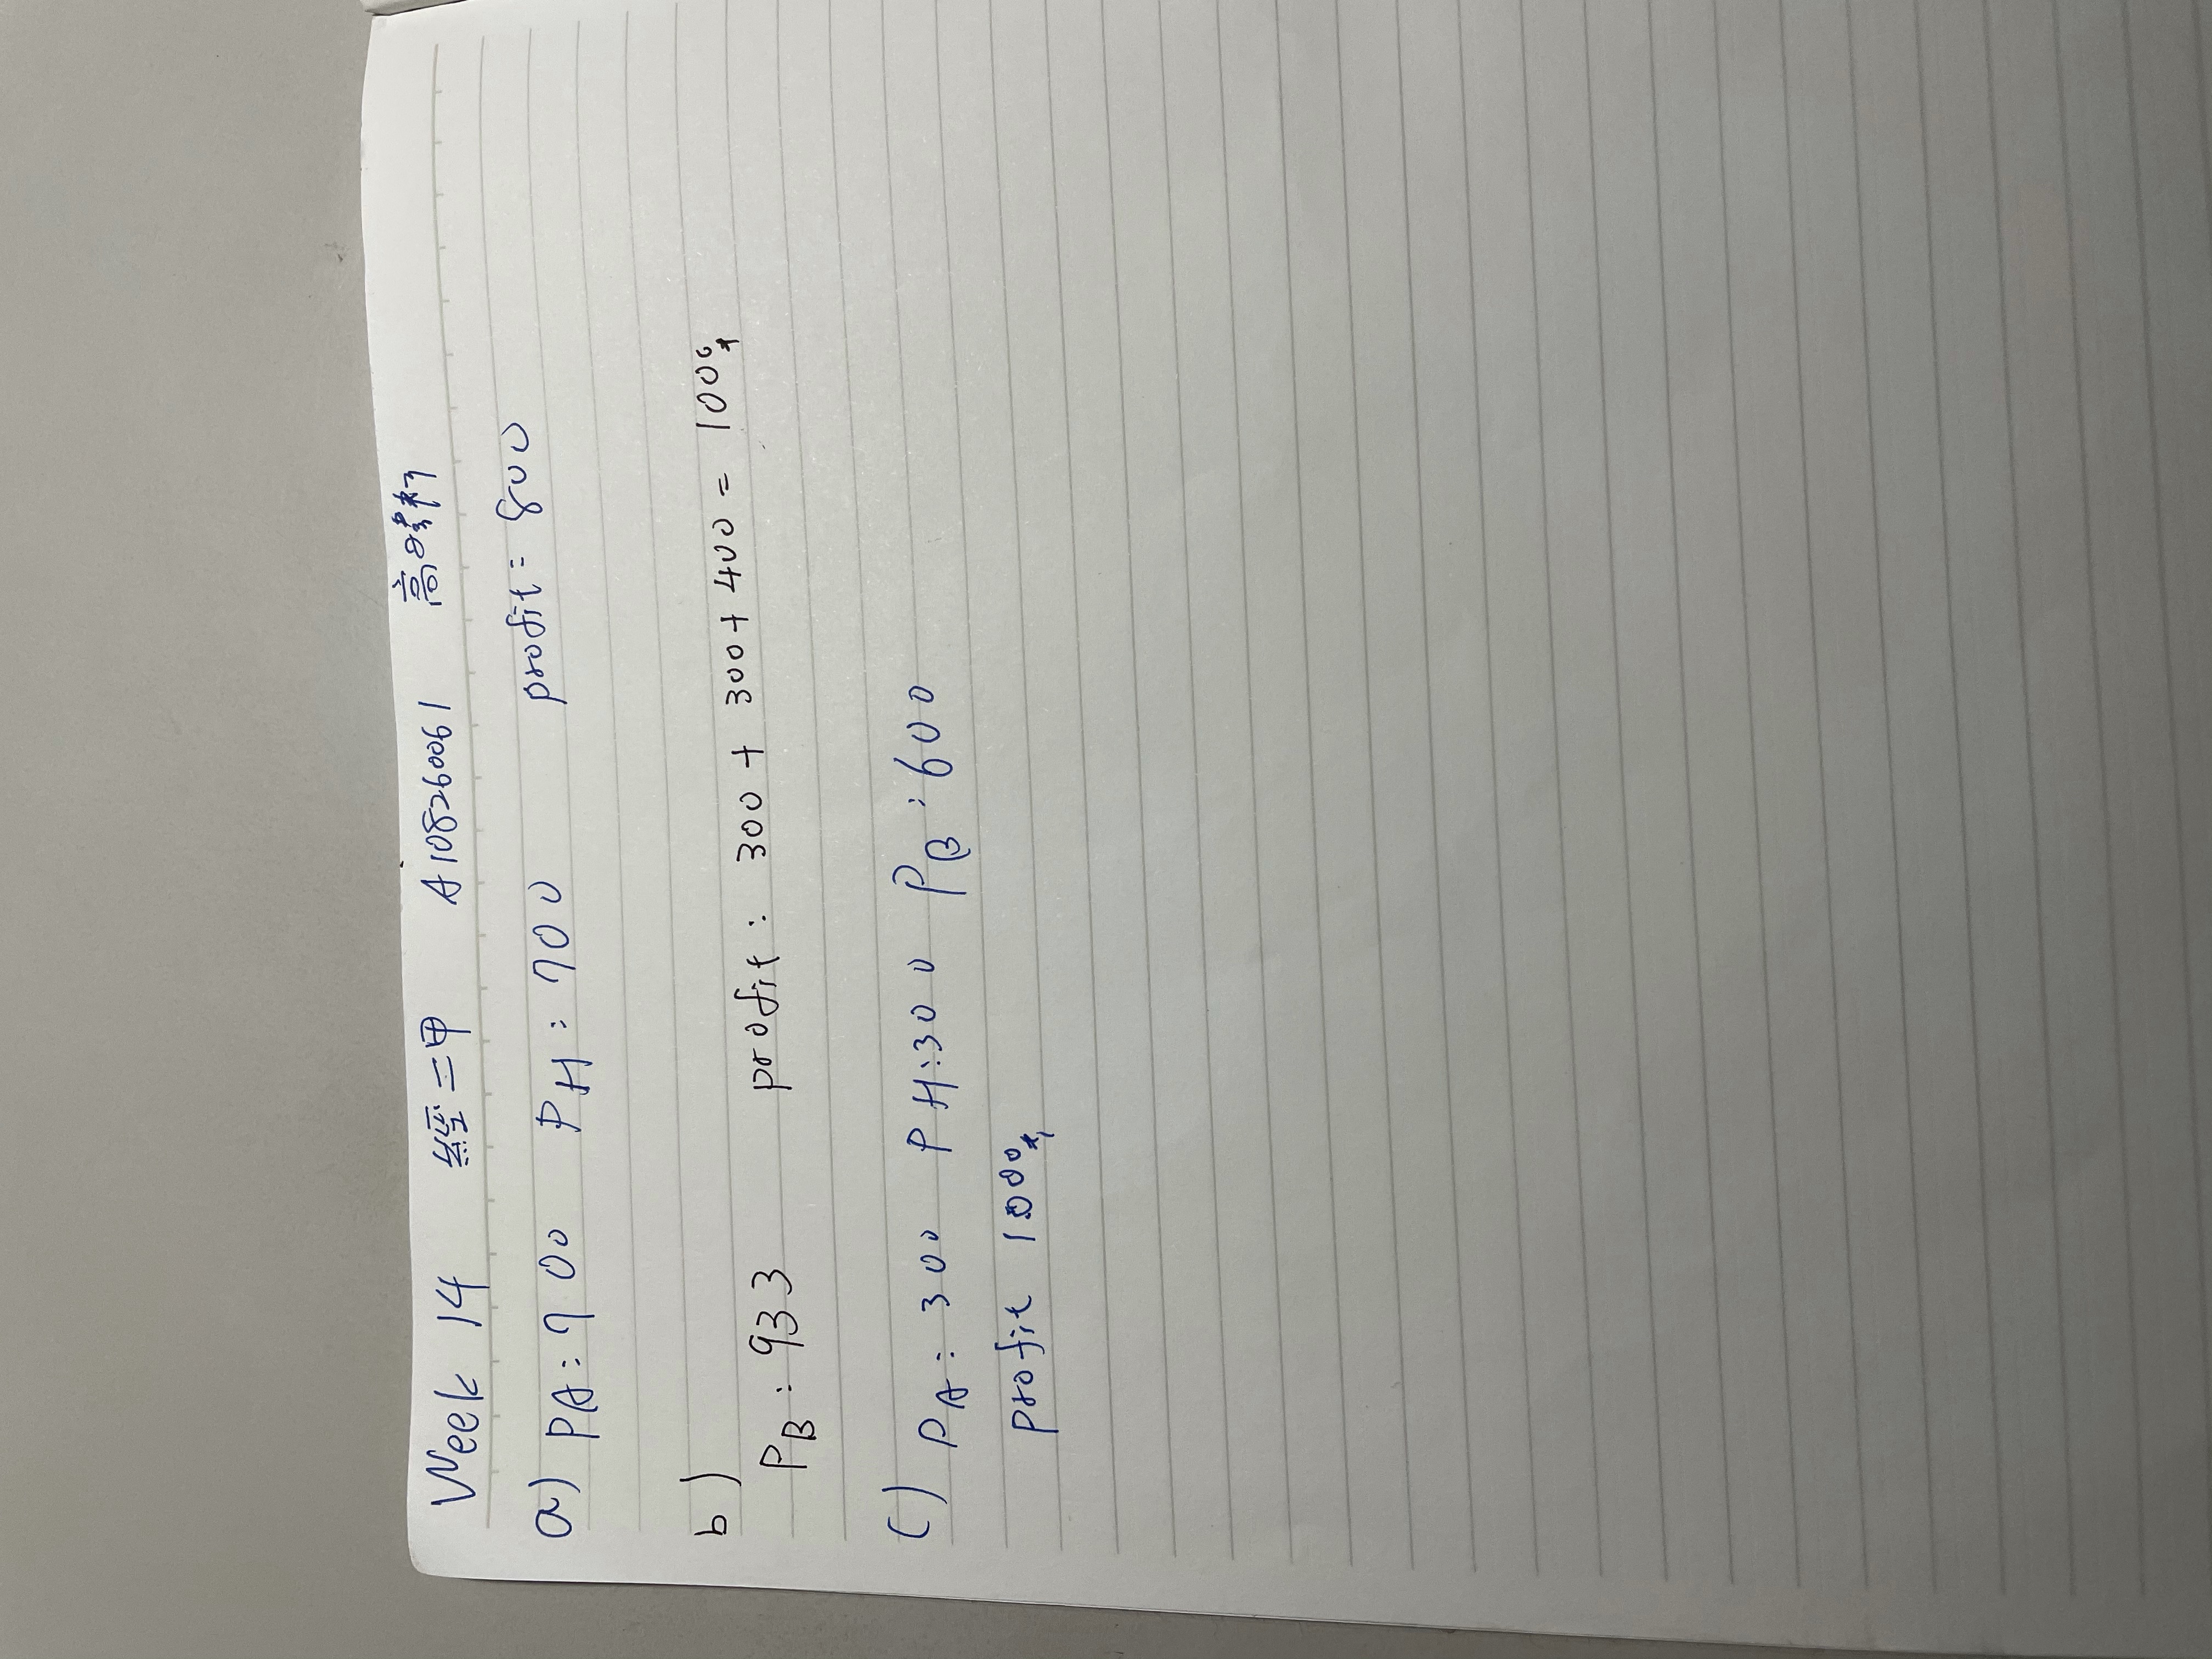 Week 14 經二甲 A108260061 高
a) PA: 700 PH: 700 profit= 800
b)
PB: 933 profit: 300 + 300 + 400 = 1000
c) PA: 300 PH: 300 PB: 600
profit 1000